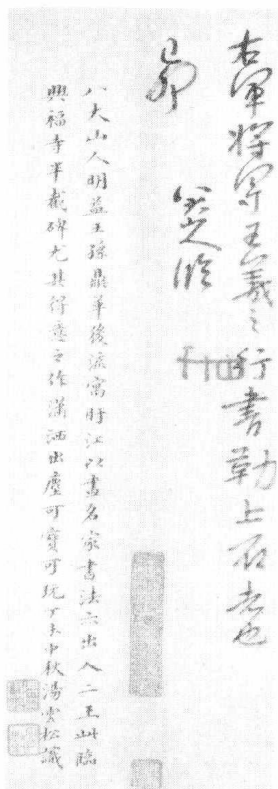 右軍將軍王羲之行書勒上石者也
己卯
八大山人臨
八大山人明益王孫鼎革後流寓盱江以書名家書法亦出入二王此臨
興福寺半截碑尤其得意之作瀟洒出塵可寶可玩丁未中秋湯雲松識